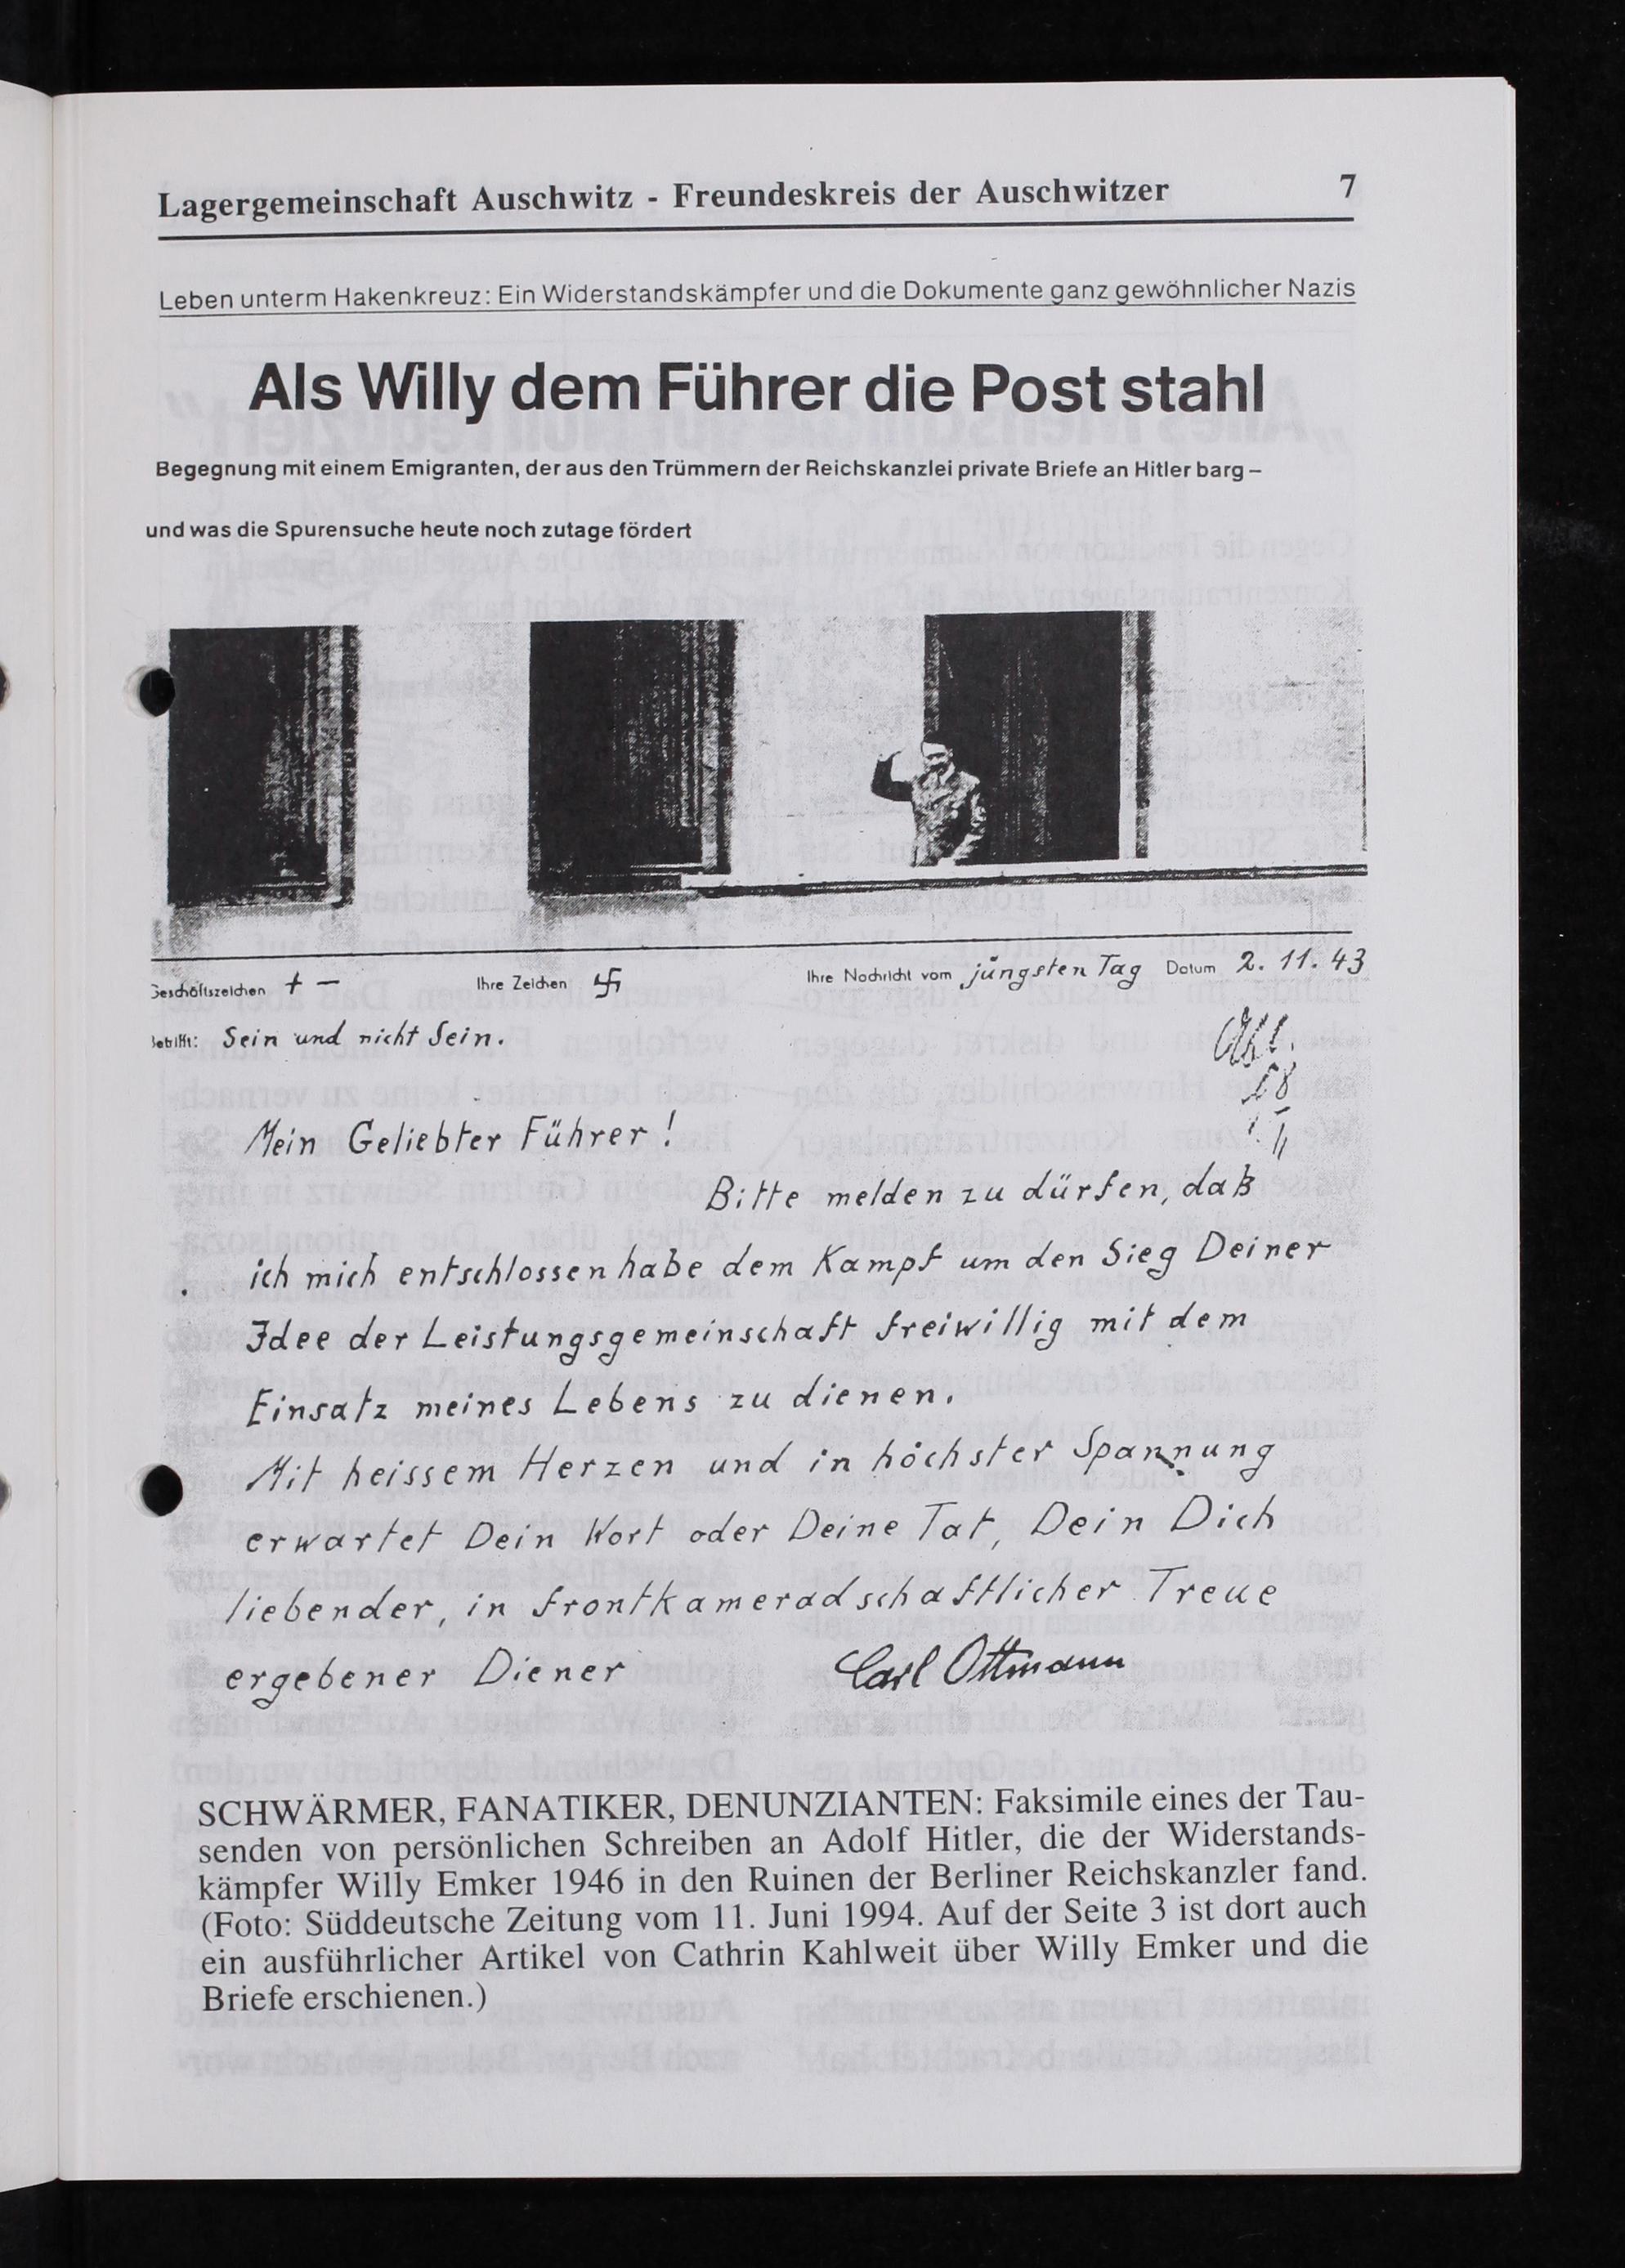 Lagergemeinschaft Auschwitz - Freundeskreis der Auschwitzer 7
Leben unterm Hakenkreuz: Ein Widerstandskämpfer und die Dokumente ganz gewöhnlicher Nazis
Als Willy dem Führer die Post stahl
Begegnung mit einem Emigranten, der aus den Trümmern der Reichskanzlei private Briefe an Hitler barg –
und was die Spurensuche heute noch zutage fördert
Geschäftszeichen + – Ihre Zeichen 卐 Ihre Nachricht vom jüngsten Tag Datum 2. 11. 43
Betrifft: Sein und nicht Sein.
Mein Geliebter Führer!
Bitte melden zu dürfen, daß
ich mich entschlossen habe dem Kampf um den Sieg Deiner
Idee der Leistungsgemeinschaft freiwillig mit dem
Einsatz meines Lebens zu dienen.
Mit heissem Herzen und in höchster Spannung
erwartet Dein Wort oder Deine Tat, Dein Dich
liebender, in frontkameradschaftlicher Treue
ergebener Diener Carl Ottmann
SCHWÄRMER, FANATIKER, DENUNZIANTEN: Faksimile eines der Tau-
senden von persönlichen Schreiben an Adolf Hitler, die der Widerstands-
kämpfer Willy Emker 1946 in den Ruinen der Berliner Reichskanzler fand.
(Foto: Süddeutsche Zeitung vom 11. Juni 1994. Auf der Seite 3 ist dort auch
ein ausführlicher Artikel von Cathrin Kahlweit über Willy Emker und die
Briefe erschienen.)